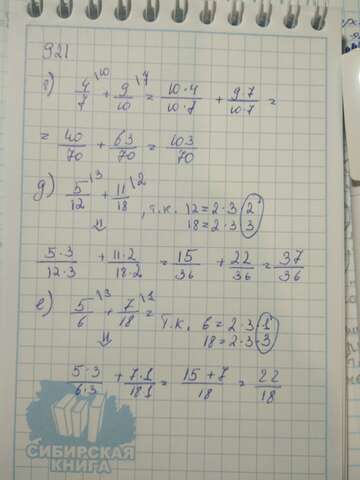 921
г) 4/7 \10 + 9/10 \7 = 10·4/10·7 + 9·7/10·7 =
= 40/70 + 63/70 = 103/70
д) 5/12 \3 + 11/18 \2 , т.к. 12=2·3·2
18=2·3·3
⇓
5·3/12·3 + 11·2/18·2 = 15/36 + 22/36 = 37/36
е) 5/6 \3 + 7/18 \1 = т.к. 6=2·3·1
18=2·3·3
⇓
5·3/6·3 + 7·1/18·1 = 15+7/18 = 22/18
СИБИРСКАЯ
КНИГА